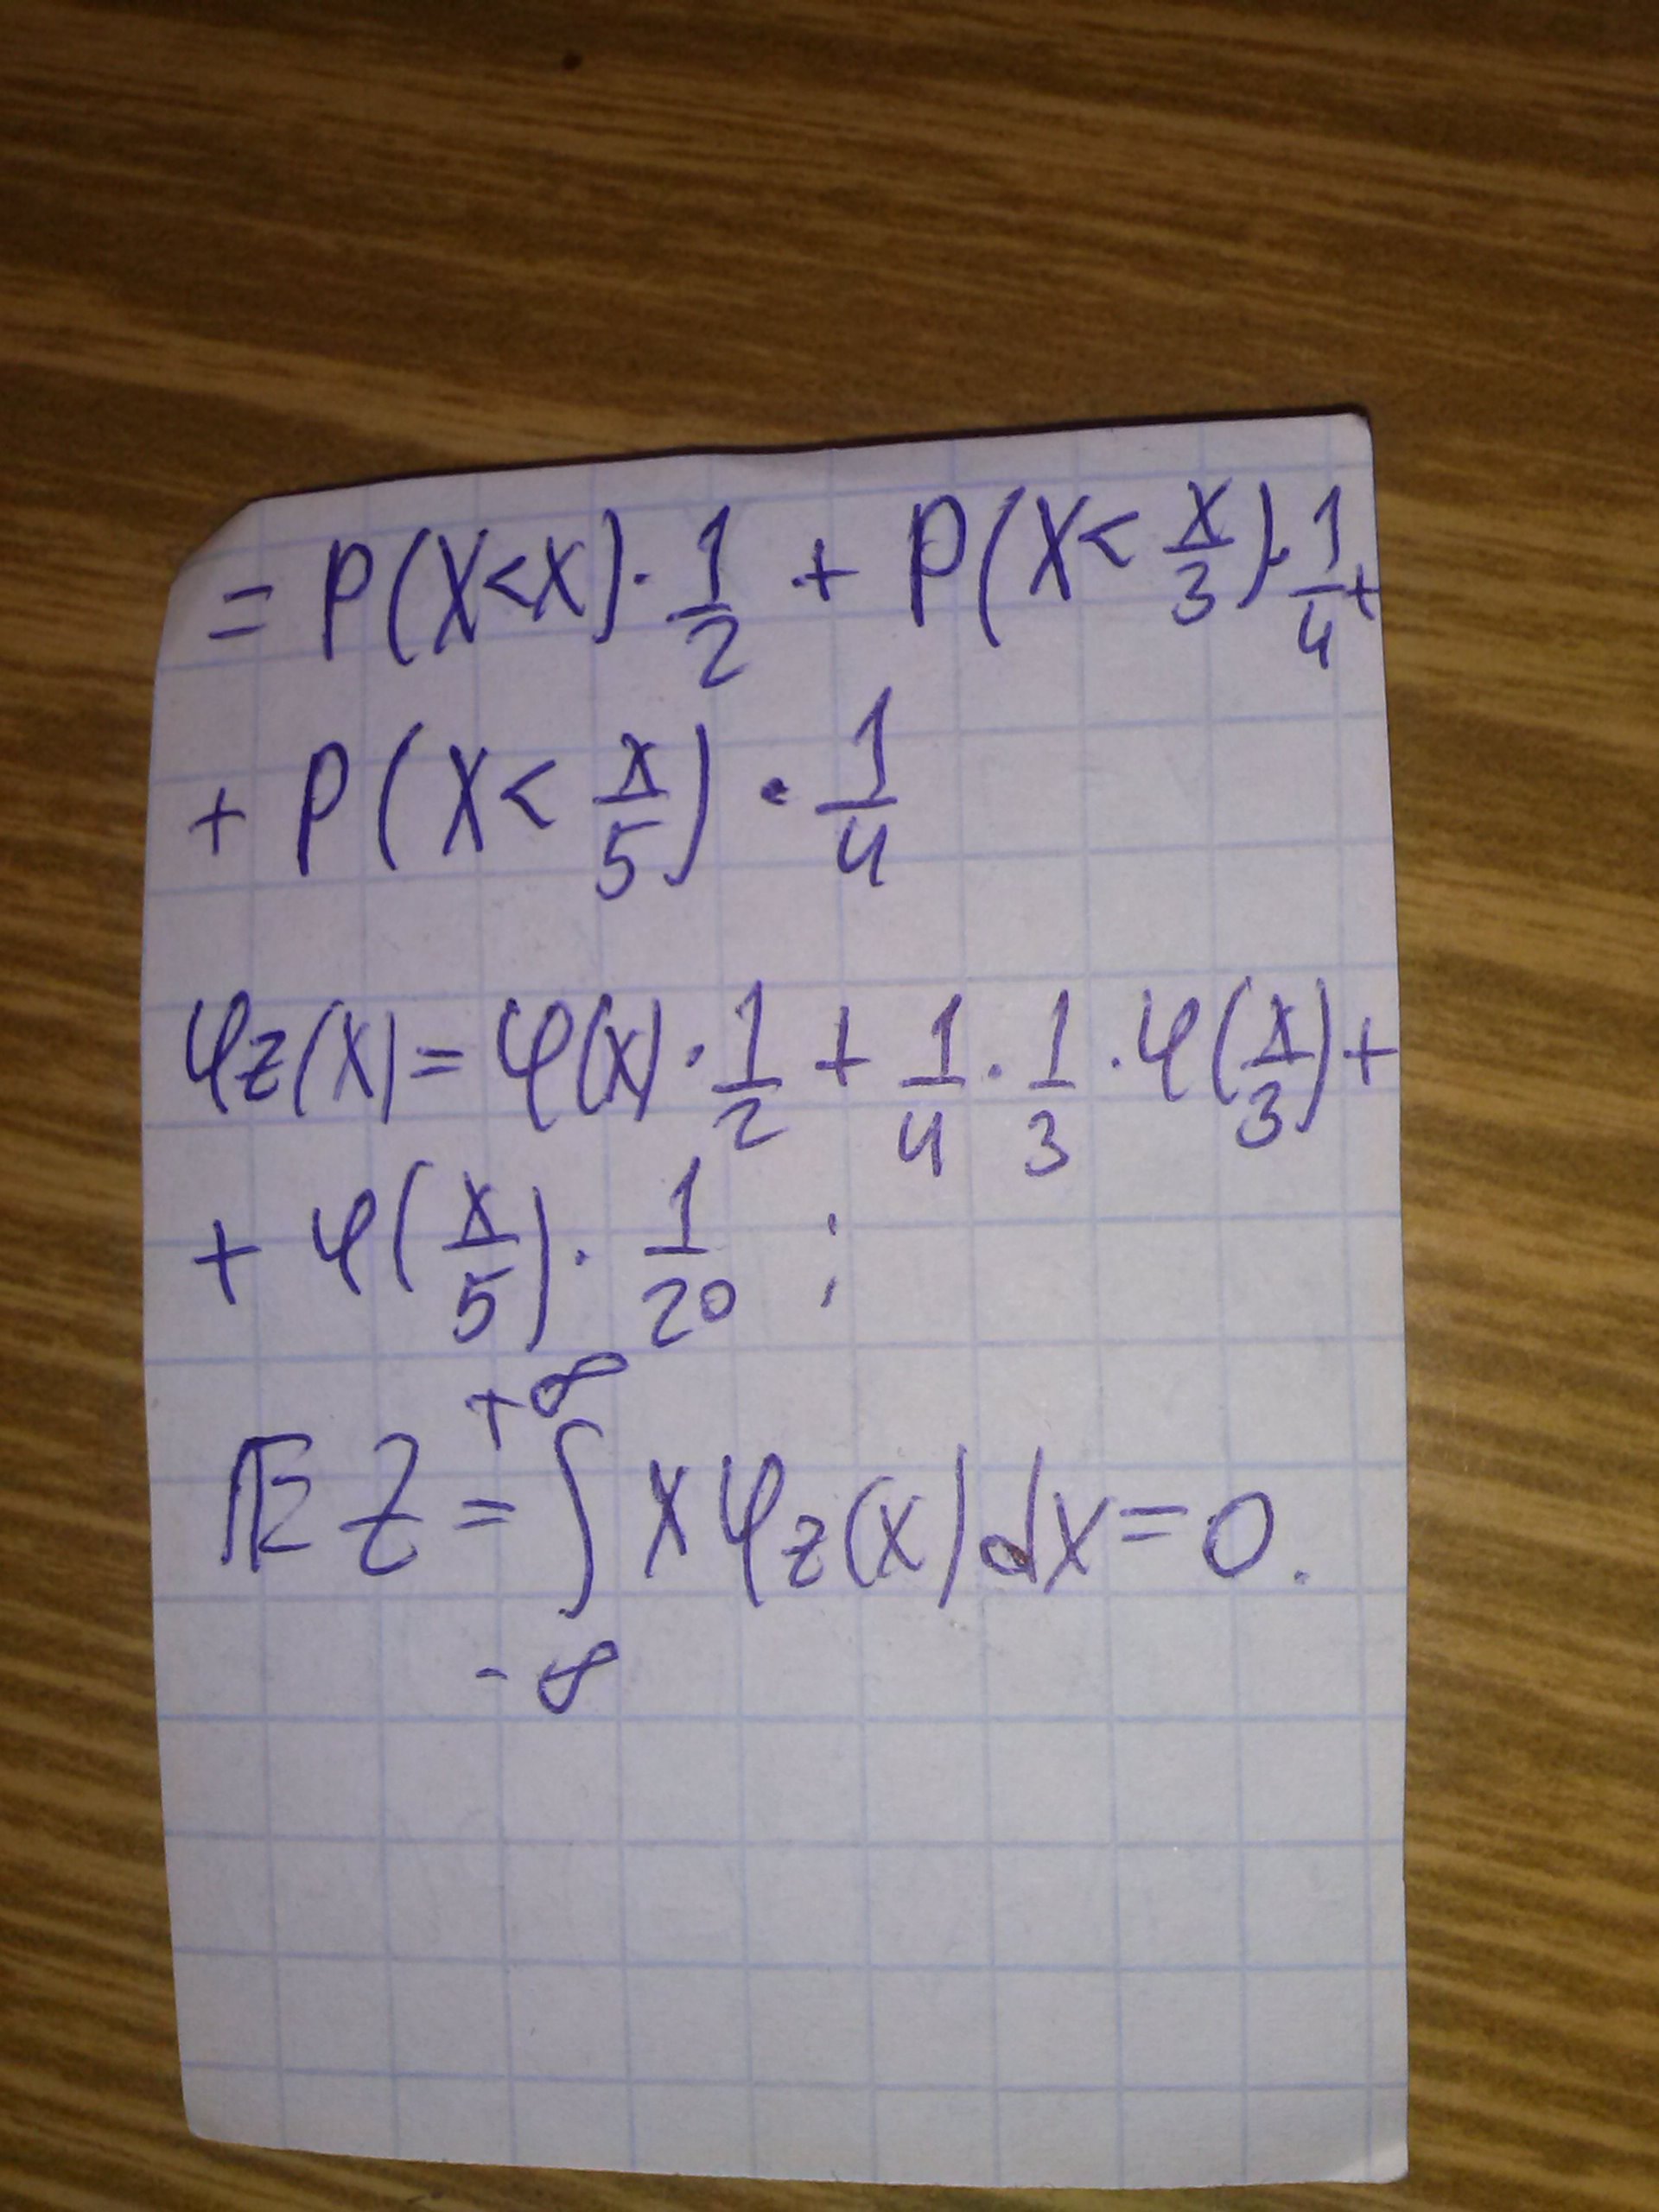 = P(X<x)·1/2 + P(X< x/3)·1/4+
+ P(X< x/5) · 1/4
φz(x)= φ(x)·1/2 + 1/4 · 1/3 · φ(x/3)+
+ φ(x/5) · 1/20 ;
𝔼Z = ∫_{-∞}^{+∞} xφz(x)dx=0.